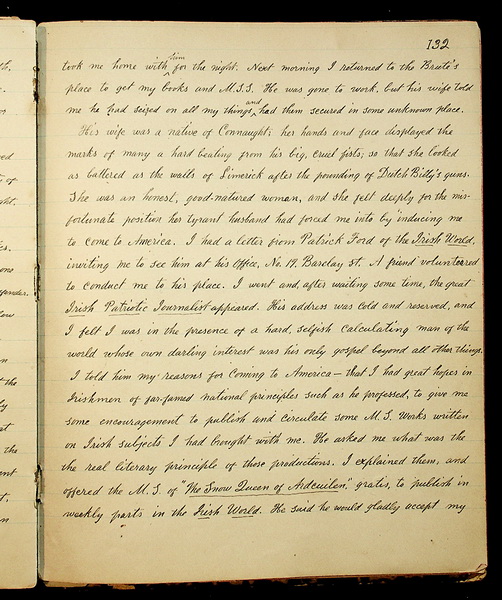 132
took me home with him for the night. Next morning I returned to the Brute's
place to get my books and M.S.S. He was gone to work, but his wife told
me he had seized on all my things and had them secured in some unknown place.
His wife was a native of Connaught; her hands and face displayed the
marks of many a hard beating from his big, cruel fists; so that she looked
as battered as the walls of Limerick after the pounding of Dutch Billy's guns.
She was an honest, good-natured woman, and she felt deeply for the mis-
fortunate position her tyrant husband had forced me into by inducing me
to come to America. I had a letter from Patrick Ford of the Irish World,
inviting me to see him at his Office, No. 17, Barclay St. A friend volunteered
to conduct me to his place. I went and, after waiting some time, the great
Irish Patriotic Journalist appeared. His address was cold and reserved, and
I felt I was in the presence of a hard, selfish calculating man of the
world whose own darling interest was his only gospel beyond all other things.
I told him my reasons for Coming to America — that I had great hopes in
Irishmen of far-famed national principles such as he professed, to give me
some encouragement to publish and circulate some M.S. Works written
on Irish subjects I had bought with me. He asked me what was the
the real literary principle of those productions. I explained them, and
offered the M.S. of "The Snow Queen of Ardcuilen," gratis, to publish in
weekly parts in the Irish World. He said he would gladly accept my